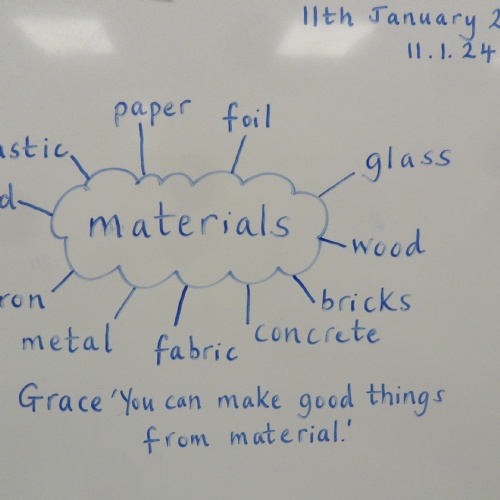 11th January 2
11.1.24
paper
foil
astic
glass
d
materials
wood
ron
bricks
metal
fabric
concrete
Grace 'You can make good things
from material.'